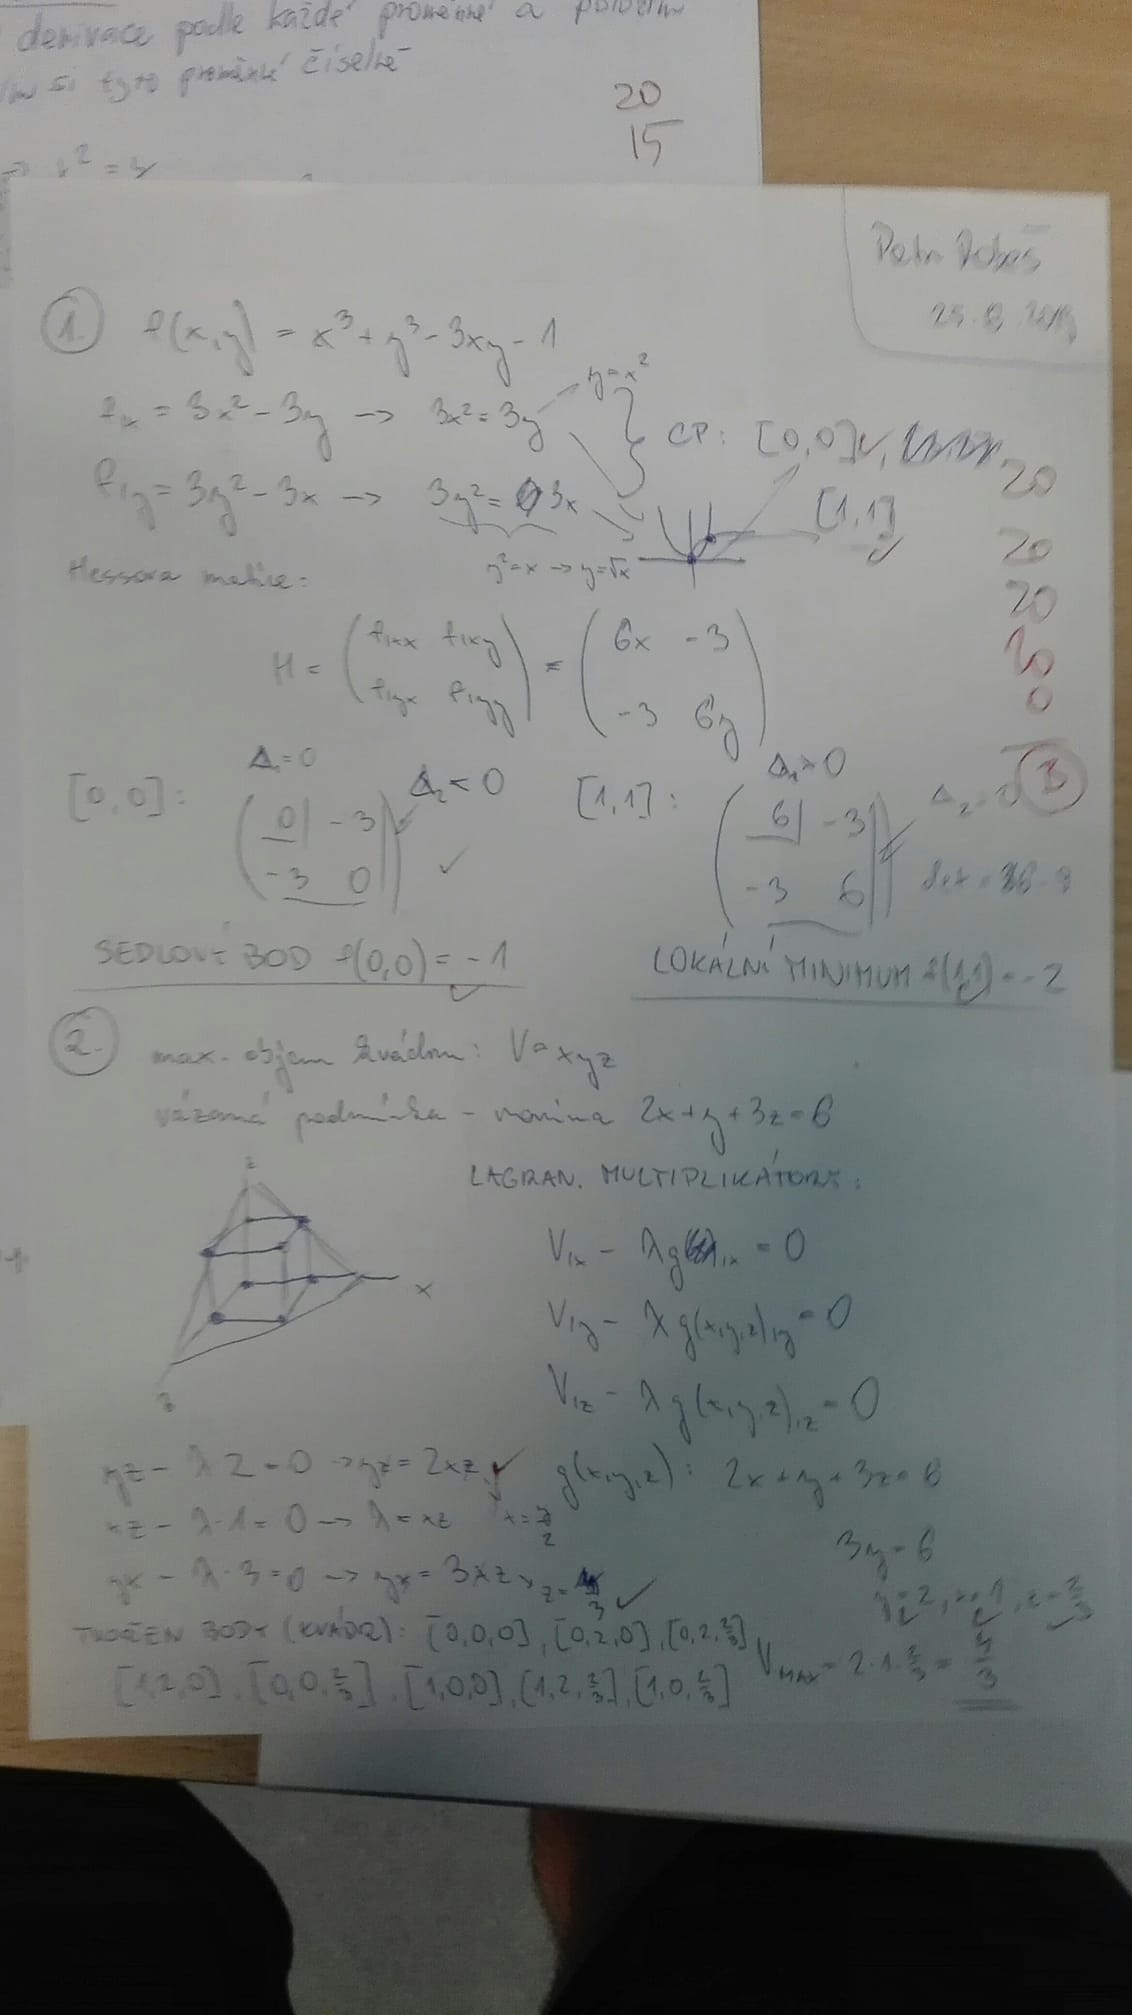 derivace podle každé proměnné a
si tyto proměnné číselně
20
15
Petr
1. f(x,y) = x³ + y³ - 3xy - 1
f,x = 3x² - 3y → 3x² = 3y
y = x²
CP: [0,0] ✓,
[1,1] ✓
f,y = 3y² - 3x → 3y² = 3x
y² = x → y = √x
20
20
20
0
Hessova matice:
H = ( f,xx f,xy ) = ( 6x -3 )
( f,yx f,yy ) ( -3 6y )
Δ₁=0
Δ₂ < 0
Δ₁>0
B
[0,0]: ( 0 -3 )
( -3 0 ) ✓
[1,1]: ( 6 -3 )
( -3 6 )
det = 36-9
SEDLOVÝ BOD f(0,0) = -1
LOKÁLNÍ MINIMUM f(1,1) = -2
2. max. objem kvádru: V = xyz
vázaná podmínka - rovina 2x+y+3z=6
LAGRAN. MULTIPLIKÁTORY:
z
x
V,x - λg,x = 0
V,y - λg(x,y,z),y = 0
V,z - λg(x,y,z),z = 0
yz - λ2 = 0 → yz = 2xz ✓
g(x,y,z): 2x+y+3z=6
xz - λ·1 = 0 → λ = xz x = y/2
3y = 6
yx - λ·3 = 0 → yx = 3xz, z = y/3 ✓
y=2, x=1, z=2/3
TVOŘEN BODY (KVÁDR): [0,0,0], [0,2,0], [0,2,2/3]
[1,2,0], [0,0,2/3], [1,0,0], [1,2,2/3], [1,0,2/3]
VMAX = 2·1·2/3 = 4/3